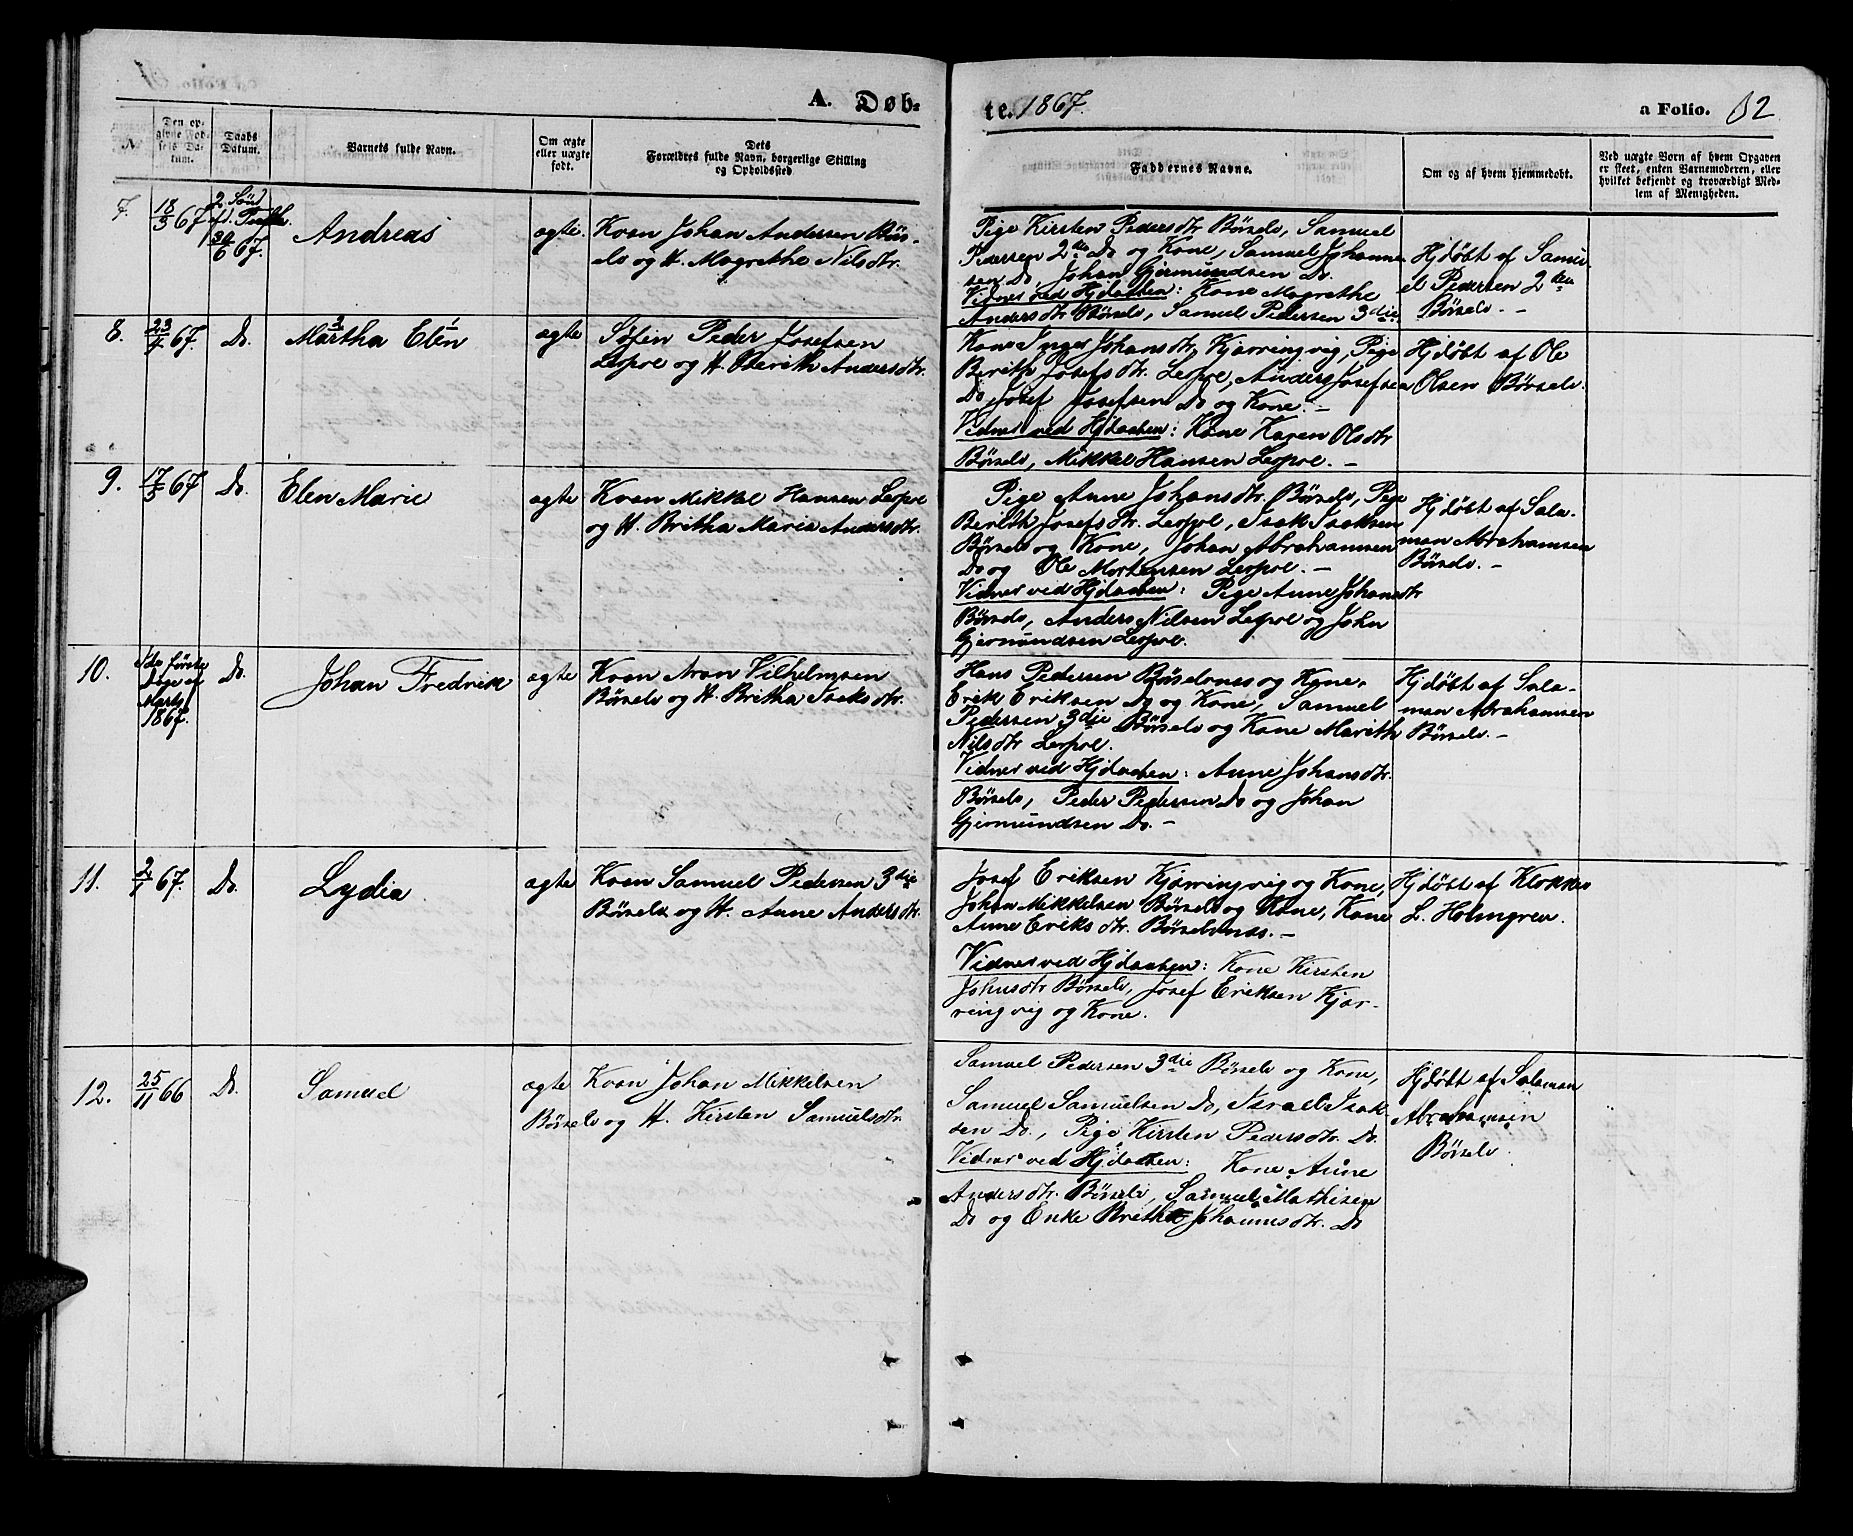 A. Døb-
te. 1867.
a Folio. 32
No
Den op-
givne Fød-
sels Da-
tum.
Daabs
Datum.
Barnets fulde Navn.
Om ægte
eller uægte
født.
Dets
Forældres fulde Navn, borgerlige Stilling
og Opholdssted.
Faddernes Navne.
Om og af hvem hjemmedøbt.
Ved uægte Børn af hvem Opgaven
er skeet, enten Barnemoderen, eller
hvilket bekjendt og troværdigt Med-
lem af Menigheden.
7.
18/3 67
2. Sønd.
30/6 67.
Andreas
ægte.
Kvæn Johan Andersen Børs-
elv og H. Magrethe Nilsdtr.
Pige Kirsten Pedersdtr. Børselv, Samuel
Pedersen 2den Do og Kone, Samuel Johanne-
sen Do, Johan Gjermundsen Do.
Vidner ved Hjdaaben: Kone Magrethe
Andersdtr. Børselv, Samuel Pedersen 3die.
Hjdøbt af Samu-
el Pedersen 2den
Børselv. -
8.
67.
Do.
2 1
Martha Elen
ægte
Søfin Peder Josefsen
Lespol og H. Berith Andersdtr.
Kone Inger Johansdtr. Kjærringvig, Pige
Berith Josefsdtr. Lespol, Anders Josefsen
Do, Josef Josefsen Do og Kone. -
Vidner ved Hjdaaben: Kone Karen Olsdtr
Børselv, Mikkel Hansen Lespol. -
Hjdøbt af Ole
Olsen Børselv.
9.
17/3 67
Do.
Elen Marie
ægte
Kvæn Mikkel Hansen Lespol
og H. Britha Maria Andersdtr.
Pige Anne Johansdtr. Børselv, Pige
Berith Josefsdtr. Lespol, Isak Isaksen
Børselv og Kone, Johan Abrahamsen
Do og Ole Mortensen Lespol. -
Vidner ved Hjdaaben: Pige Anne Johansdtr
Børselv, Anders Nilsen Lespol og John
Gjermundsen Lespol.
Hjdøbt af Sala-
man Abrahamsen
Børselv. -
10.
første
Dage af
Marts
1867.
Do.
Johan Fredrik
ægte
Kvæn Aron Vilhelmsen
Børselv og H. Britha Isaksdtr.
Hans Pedersen Børselvnes og Kone,
Erik Eriksen Do og Kone, Samuel
Pedersen 3die Børselv og Kone Marith
Nilsdtr Lespol.
Vidner ved Hjdaaben: Anne Johansdtr.
Børselv, Peder Pedersen Do og Johan
Gjermundsen Do. -
Hjdøbt af Sala-
man Abrahamsen
Børselv. -
11.
2/1 67.
Do.
Lydia.
ægte
Kvæn Samuel Pedersen 3die
Børselv og H. Anne Andersdtr.
Josef Eriksen Kjærringvig og Kone,
Johan Mikkelsen Børselv og Kone, Kone
Anne Eriksdtr. Børselvnæs. -
Vidner ved Hjdaaben: Kone Kirsten
Johnsdtr Børselv, Josef Eriksen Kjær-
ringvig og Kone.
Hjdøbt af Klokker
L. Holmgren.
12.
25/11 66
Do.
Samuel
ægte
Kvæn Johan Mikkelsen
Børselv og H. Kirsten Samuelsdtr.
Samuel Pedersen 3die Børselv og Kone,
Samuel Samuelsen Do, Israel Isak-
sen Do., Pige Kirsten Pedersdtr. Do.
Vidner ved Hjdaaben: Kone Anne
Andersdtr. Børselv, Samuel Mathisen
Do og Enke Britha Johannesdtr. Do
Hjdøbt af Salaman
Abrahamsen
Børselv.